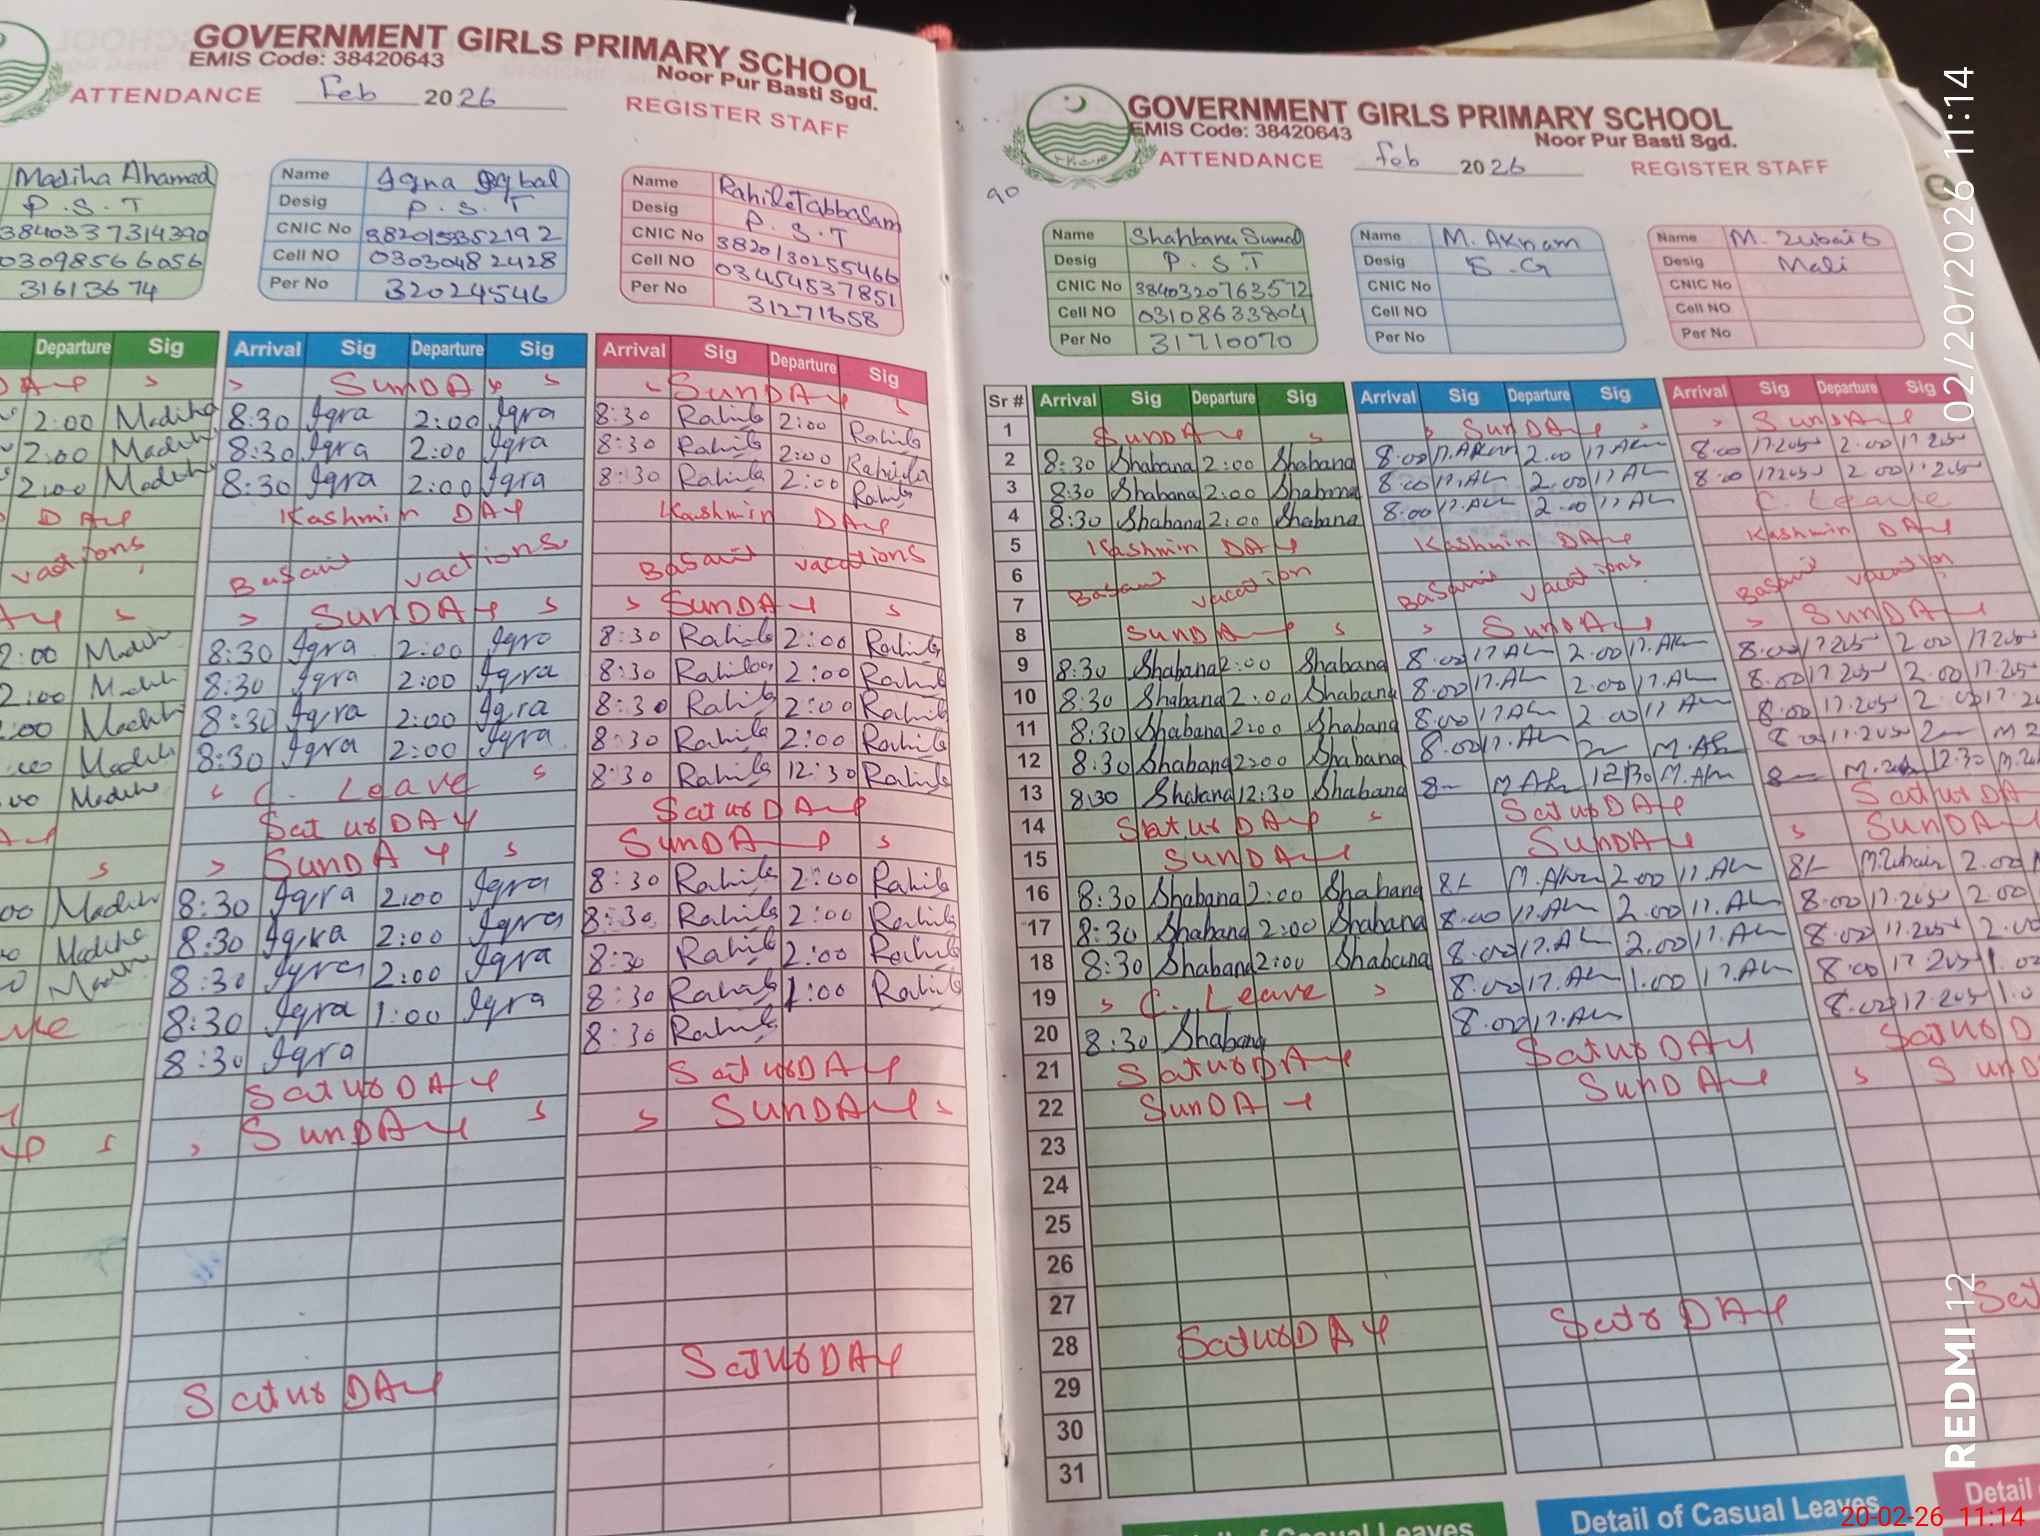 GOVERNMENT GIRLS PRIMARY SCHOOL
EMIS Code: 38420643
Noor Pur Basti Sgd.
ATTENDANCE Feb 2026
REGISTER STAFF
Madiha Ahamad
P.S.T
3840337314390
03098566056
31613674
Name Iqra Iqbal
Desig P.S.T
CNIC No 3820153352192
Cell NO 03030482428
Per No 32024546
Name Rahila Tabbasam
Desig P.S.T
CNIC No 3820130255466
Cell NO 03454537851
Per No 31271658
Departure Sig
DAY
2:00 Madiha
2:00 Madiha
2:00 Madiha
DAY
vactions
2:00 Madiha
2:00 Madiha
:00 Madiha
:00 Madiha
:00 Madiha
00 Madiha
Madiha
Madiha
Arrival Sig Departure Sig
SunDAY
8:30 Iqra 2:00 Iqra
8:30 Iqra 2:00 Iqra
8:30 Iqra 2:00 Iqra
Kashmir DAY
Basant vactions
SunDAY
8:30 Iqra 2:00 Iqra
8:30 Iqra 2:00 Iqra
8:30 Iqra 2:00 Iqra
8:30 Iqra 2:00 Iqra
C. Leave
SaturDAY
SunDAY
8:30 Iqra 2:00 Iqra
8:30 Iqra 2:00 Iqra
8:30 Iqra 2:00 Iqra
8:30 Iqra 1:00 Iqra
8:30 Iqra
SaturDAY
SunDAY
SaturDAY
Arrival Sig Departure Sig
SunDAY
8:30 Rahila 2:00 Rahila
8:30 Rahila 2:00 Rahila
8:30 Rahila 2:00 Rahila
Kashmir DAY
Basant vacations
SunDAY
8:30 Rahila 2:00 Rahila
8:30 Rahila 2:00 Rahila
8:30 Rahila 2:00 Rahila
8:30 Rahila 2:00 Rahila
8:30 Rahila 12:30 Rahila
SaturDAY
SunDAY
8:30 Rahila 2:00 Rahila
8:30 Rahila 2:00 Rahila
8:30 Rahila 2:00 Rahila
8:30 Rahila 1:00 Rahila
8:30 Rahila
SaturDAY
SunDAY
SaturDAY
GOVERNMENT GIRLS PRIMARY SCHOOL
EMIS Code: 38420643
Noor Pur Basti Sgd.
ATTENDANCE Feb 2026
REGISTER STAFF
90
Name Shahbana Sumal
Desig P.S.T
CNIC No 3840320763572
Cell NO 03108633804
Per No 31710070
Name M. Akram
Desig S.G
CNIC No
Cell NO
Per No
Name M. Zubair
Desig Mali
CNIC No
Cell NO
Per No
Sr # Arrival Sig Departure Sig
1 SunDAY
2 8:30 Shabana 2:00 Shabana
3 8:30 Shabana 2:00 Shabana
4 8:30 Shabana 2:00 Shabana
5 Kashmir DAY
6 Basant vacation
7
8 SunDAY
9 8:30 Shabana 2:00 Shabana
10 8:30 Shabana 2:00 Shabana
11 8:30 Shabana 2:00 Shabana
12 8:30 Shabana 2:00 Shabana
13 8:30 Shabana 12:30 Shabana
14 SaturDAY
15 SunDAY
16 8:30 Shabana 2:00 Shabana
17 8:30 Shabana 2:00 Shabana
18 8:30 Shabana 2:00 Shabana
19 C. Leave
20 8:30 Shabana
21 SaturDAY
22 SunDAY
23
24
25
26
27
28 SaturDAY
29
30
31
Arrival Sig Departure Sig
SunDAY
8:00 M.Akram 2:00
8:00 2:00
8:00 2:00
Kashmir DAY
Basant vacations
SunDAY
8:00 2:00
8:00 2:00
8:00 2:00
8:00
12:30
SaturDAY
SunDAY
M.Akram 2:00
8:00 2:00
8:00 2:00
8:00 1:00
8:00
SaturDAY
SunDAY
SaturDAY
Arrival Sig Departure Sig
SunDAY
8:00 2:00
8:00 2:00
C. Leave
Kashmir DAY
Basant vacation
SunDAY
8:00 2:00
8:00 2:00
8:00
12:30
SunDAY
M.Zubair 2:00
8:00 2:00
8:00
8:00
8:00
Detail of Casual Leaves
Detail
02/20/2026 11:14
REDMI 12
20-02-26 11:14